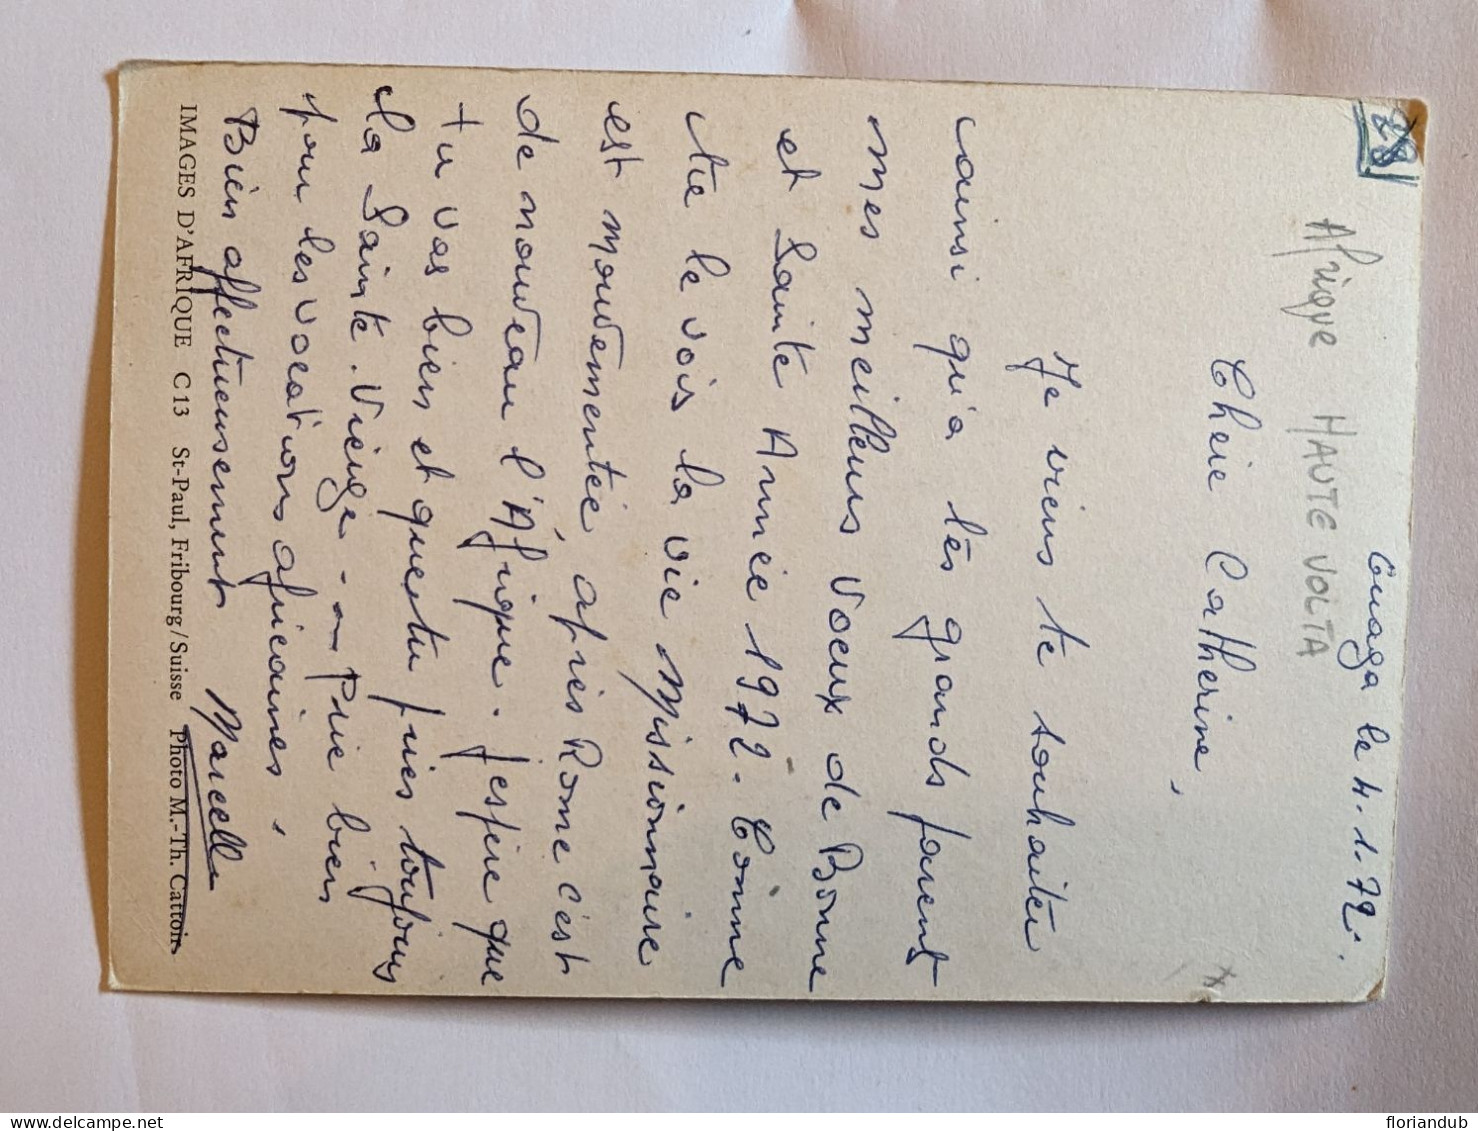 28
Afrique HAUTE VOLTA
Ouaga le 4.1.72.
Chère Catherine,
Je viens te souhaiter
ainsi qu'a tes grands parents
mes meilleurs voeux de Bonne
et Sainte Année 1972. Comme
tu le vois la vie Missionnaire
est mouvementée, après Rome c'est
de nouveau l'Afrique. J'espère que
tu vas bien et que tu pries toujours
la Sainte Vierge. Prie bien
pour les vocations africaines,
Bien affectueusement Marcelle
IMAGES D'AFRIQUE C 13 St-Paul, Fribourg/Suisse Photo M.-Th. Cattoir
floriandub